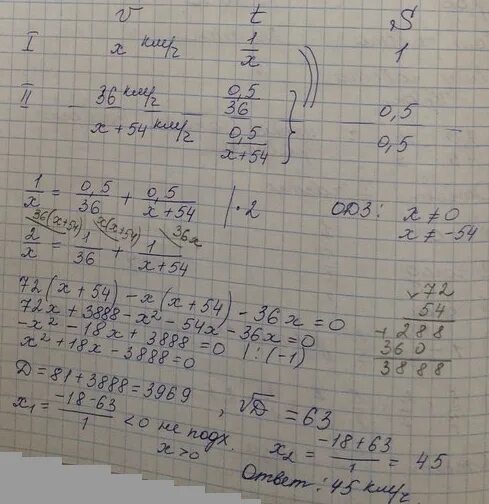 v t S
I x км/ч 1/x 1
II 36 км/ч 0,5/36 0,5
x+54 км/ч 0,5/(x+54) 0,5
1/x = 0,5/36 + 0,5/(x+54) | · 2 ОДЗ: x ≠ 0
x ≠ -54
36(x+54) x(x+54) 36x
2/x = 1/36 + 1/(x+54)
72(x+54) - x(x+54) - 36x = 0
72x + 3888 - x² - 54x - 36x = 0
-x² - 18x + 3888 = 0 | : (-1)
x² + 18x - 3888 = 0
72
54
288
360
3888
D = 81 + 3888 = 3969 , √D = 63
x₁ = (-18-63)/1 < 0 не подх.
x > 0
x₂ = (-18+63)/1 = 45
Ответ: 45 км/ч